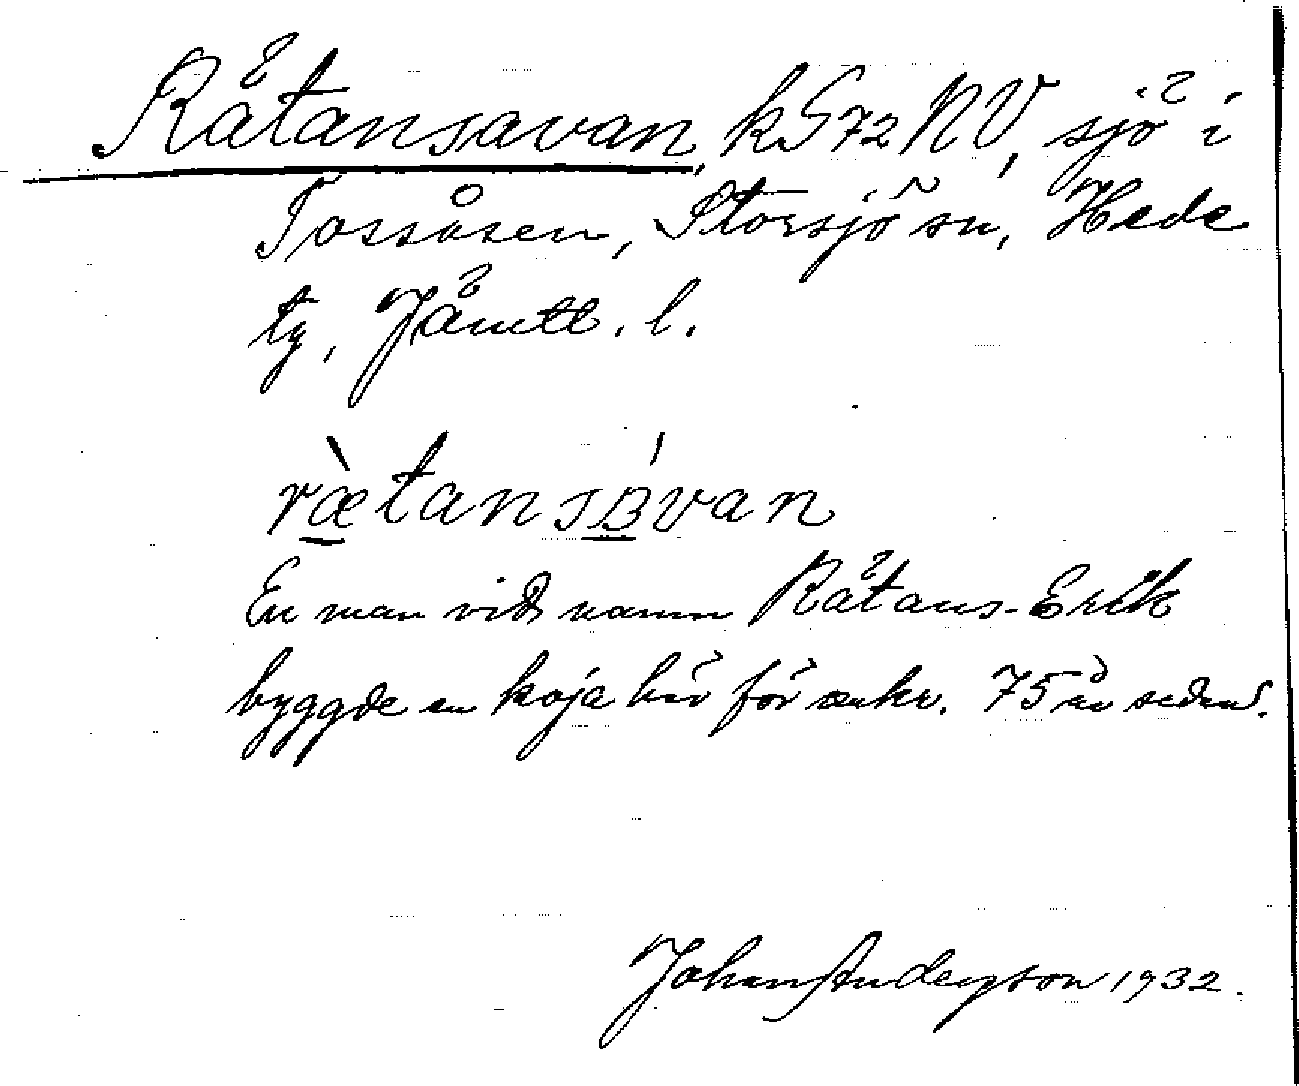 Rätansavan, kG72NV, sjö i
Tossåsen, Storsjö sn, Hede
tg, Jämtl. l.
ræ̀tansʙ́van
En man vid namn Rätans-Erik
byggde en koja här för omkr. 75 år sedan.
Johan Anderson 1932.